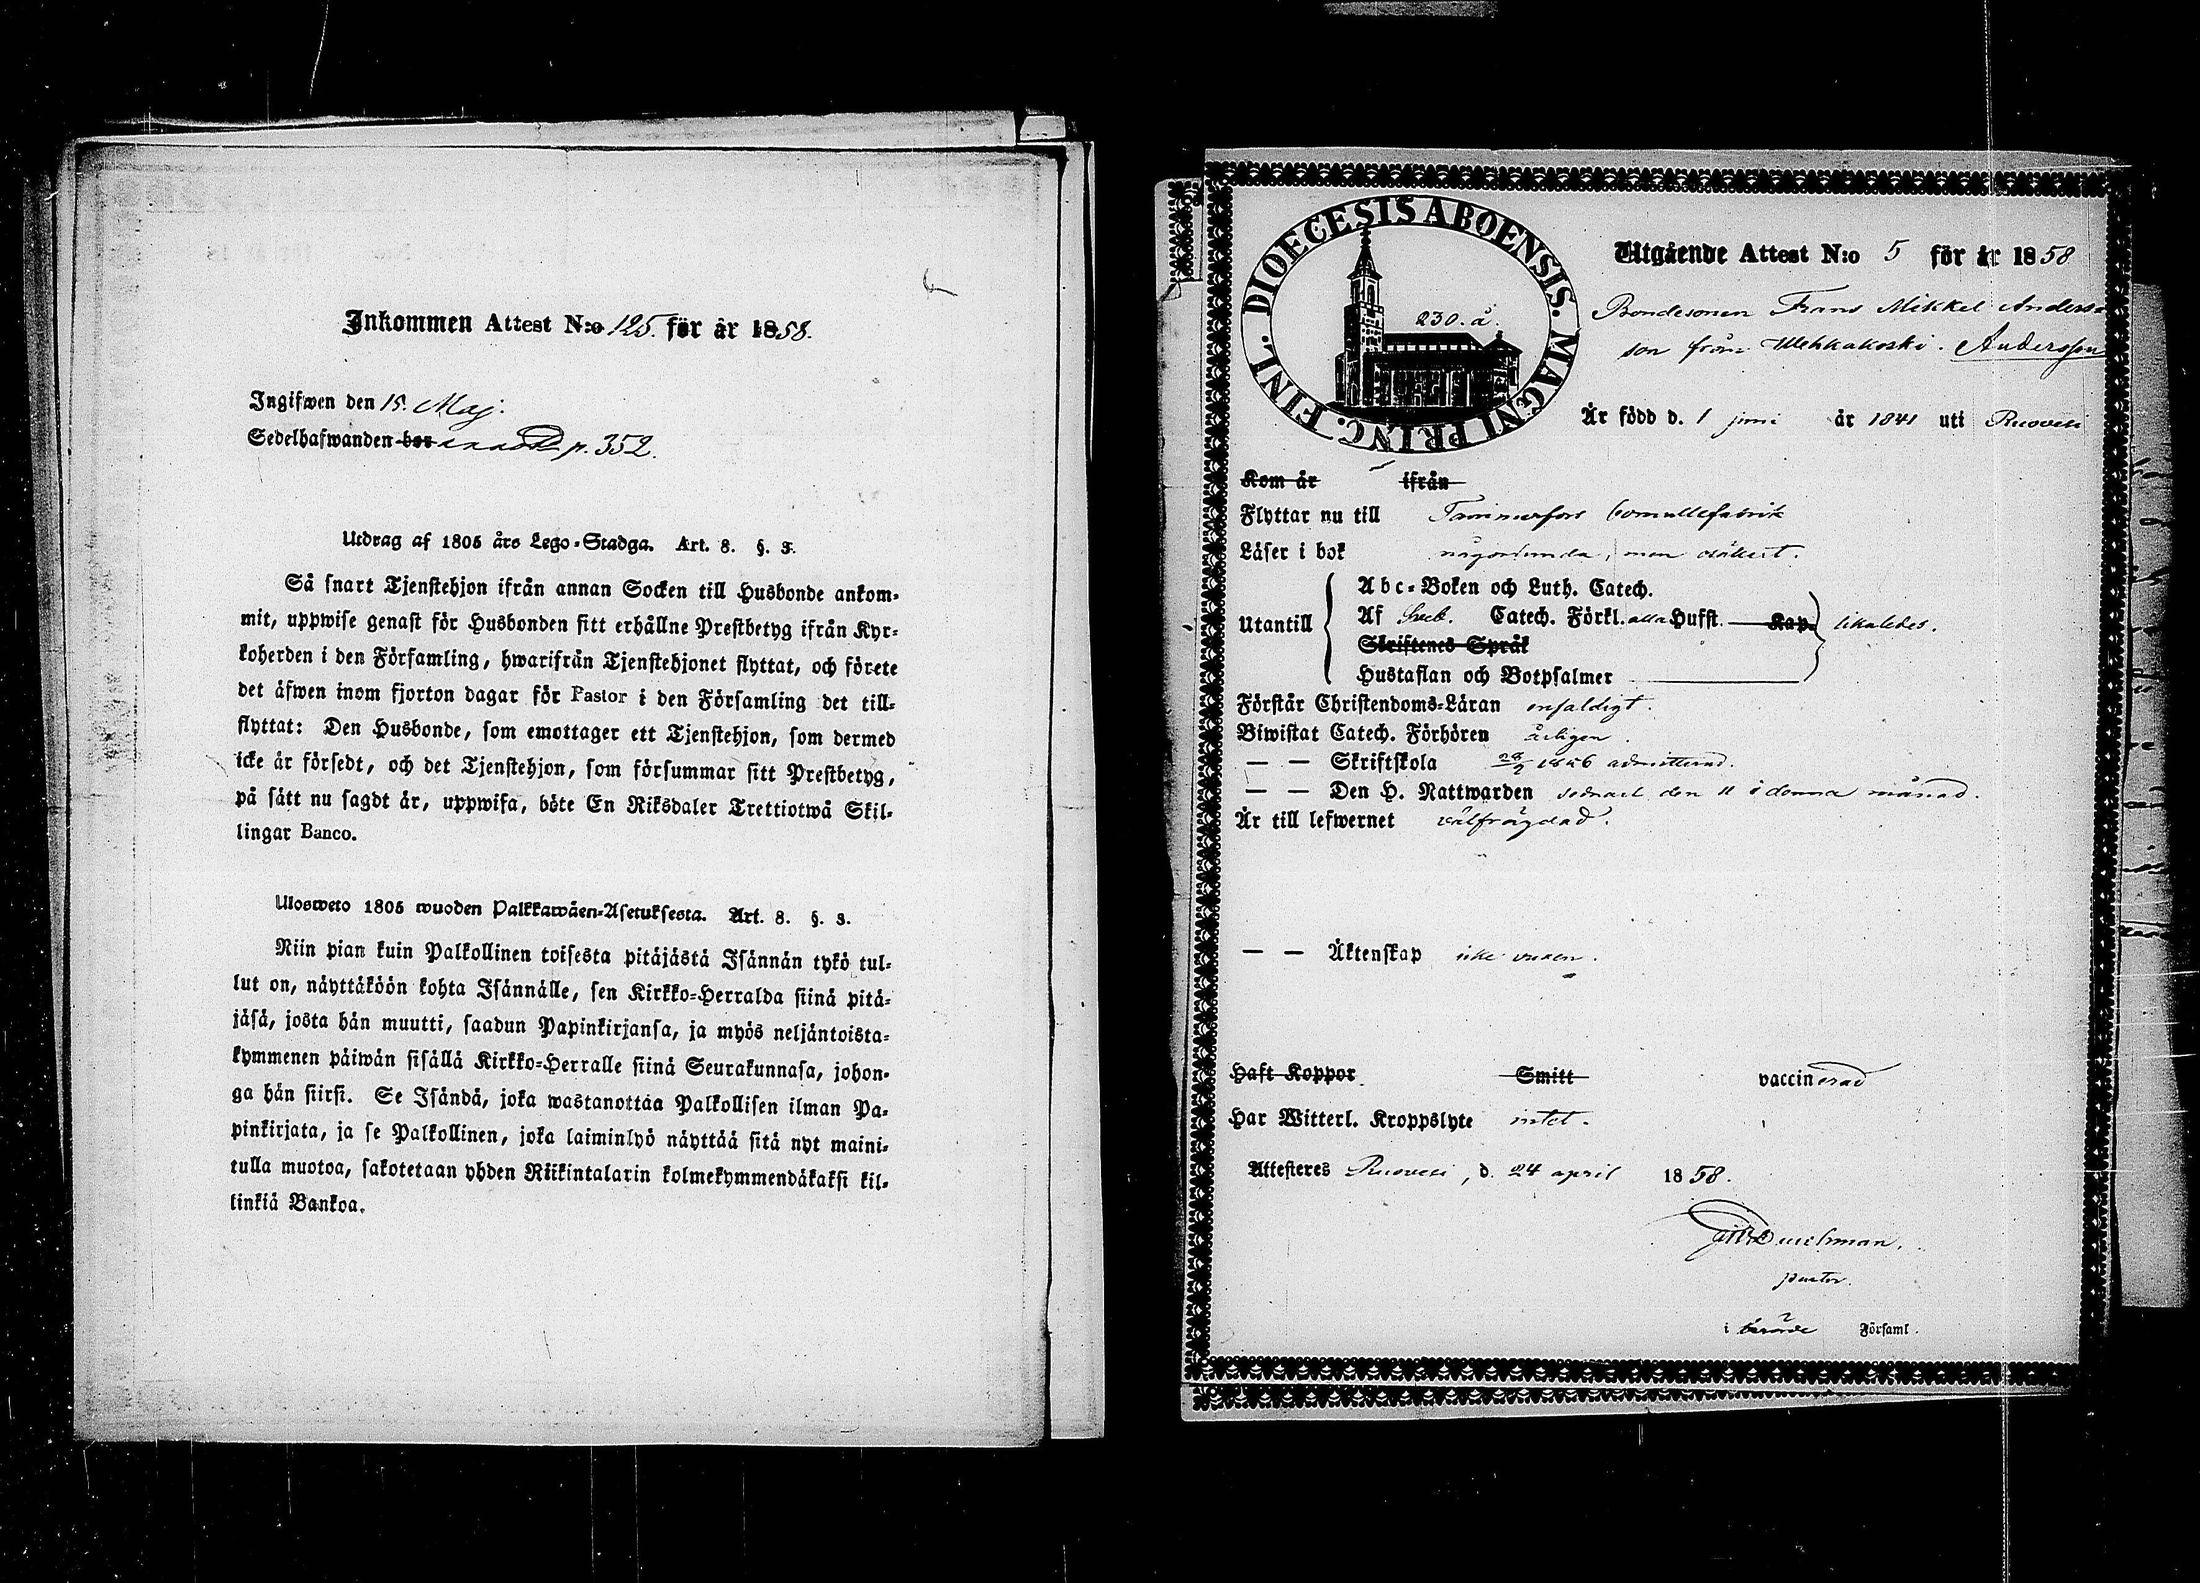 Inkommen Attest N:o 125. för år 1858.
Ingifwen den 15. Maj.
Sedelhafwanden bor p. 352.
Utdrag af 1805 års Lego-Stadga. Art. 8. §. 3.
Så snart Tjenstehjon ifrån annan Socken till Husbonde ankom-
mit, uppwise genast för Husbonden sitt erhållne Prestbetyg ifrån Kyr-
koherden i den Församling, hwarifrån Tjenstehjonet flyttat, och förete
det äfwen inom fjorton dagar för Pastor i den Församling det till-
flyttat: Den Husbonde, som emottager ett Tjenstehjon, som dermed
icke är försedt, och det Tjenstehjon, som försummar sitt Prestbetyg,
på sätt nu sagdt är, uppwisa, böte En Riksdaler Trettiotwå Skil-
lingar Banco.
Ulosweto 1805 wuoden Palkkawäen-Asetuksesta. Art. 8. §. 3.
Niin pian kuin Palkollinen toisesta pitäjästä Isännän tykö tul-
lut on, näyttäköön kohta Isännälle, sen Kirkko-Herralda siinä pitä-
jäsä, josta hän muutti, saadun Papinkirjansa, ja myös neljäntoista-
kymmenen päiwän sisällä Kirkko-Herralle siinä Seurakunnasa, johon-
ga hän siirsi. Se Isändä, joka wastanottaa Palkollisen ilman Pa-
pinkirjata, ja se Palkollinen, joka laiminlyö näyttää sitä nyt maini-
tulla muotoa, sakotetaan yhden Riikintalarin kolmekymmendäkaksi kil-
linkiä Bankoa.
DIOECESIS ABOENSIS. MAGNI PRINC. FINL.
230. å.
Utgående Attest N:o 5 för år 1858
Bondesonen Frans Mikkel Anders-
son från Wehkakoski. Andersson
Är född d. 1 juni år 1841 uti Ruovesi
Kom år ifrån
Flyttar nu till Tammerfors bomullsfabrik
Läser i bok någorlunda, men osäkert.
Abc-Boken och Luth. Catech.
Utantill Af Sveb. Catech. Förkl. alla Hufst. Kap. likaledes.
Skriftenes Språk
Hustaflan och Botpsalmer
Förstår Christendoms-Läran enfaldigt.
Biwistat Catech. Förhören årligen.
— — Skriftskola 1856 admitterad.
— — Den H. Nattwarden sednast den 11 i denna månad.
Är till lefwernet välfrägdad.
— — Äktenskap icke vuxen.
Haft Koppor Smitt vaccinerad
Har Witterl. Kroppslyte intet.
Attesteres Ruovesi, d. 24 april 1858.
pastor.
i berörde Församl.